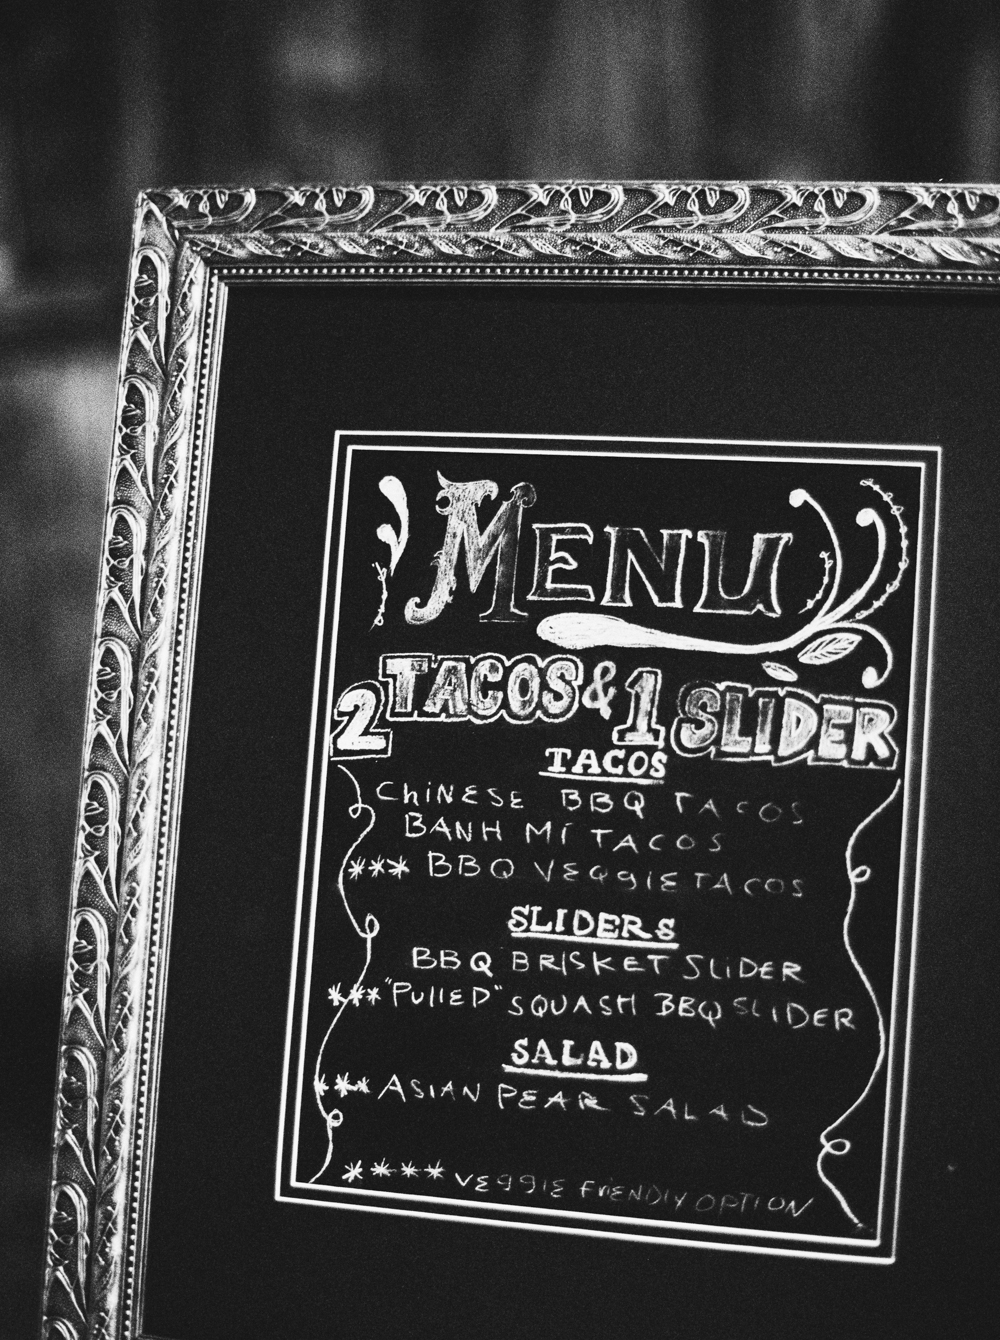 MENU
2 TACOS & 1 SLIDER
TACOS
CHINESE BBQ TACOS
BANH MÍ TACOS
*** BBQ VEGGIE TACOS
SLIDERS
BBQ BRISKET SLIDER
*** "PULLED" SQUASH BBQ SLIDER
SALAD
*** ASIAN PEAR SALAD
**** VEGGIE FRIENDLY OPTION